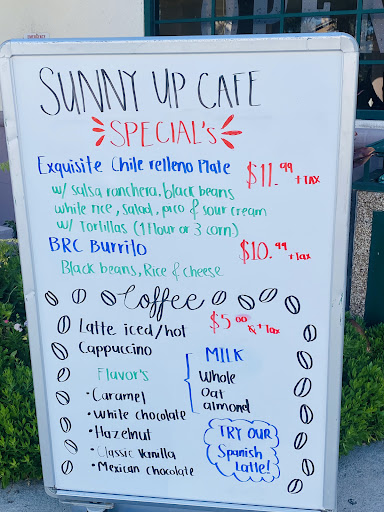 SUNNY UP CAFE
SPECIAL's
Exquisite Chile relleno Plate $11.99 +TAX
w/ salsa ranchera, black beans
white rice, salad, pico & sour cream
w/ Tortillas (1 flour or 3 corn)
BRC Burrito $10.99 +Tax
Black beans, Rice & cheese
Coffee
Latte iced/hot $5.00 +Tax
Cappuccino
Flavor's
• Caramel
• White chocolate
• Hazelnut
• Classic Vanilla
• Mexican chocolate
MILK
Whole
Oat
almond
TRY OUR
Spanish
Latte!